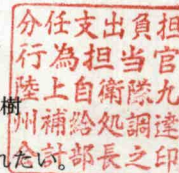 分任支出負担
行為担当官
陸上自衛隊九
州補給処調達
会計部長之印
樹
れたい。